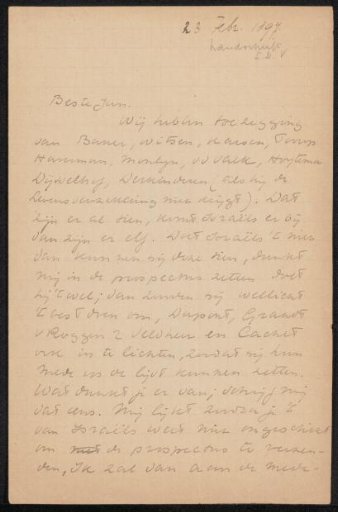 23 Febr. 1897
Beste Jan.
Wij hebben toezegging
van Bauer, Witsen, Karsen, Toorop
Haverman, Moulyn, v d Valk, Hoytema
Dijsselhof, Derkinderen (als hij de
levensverzekering niet krijgt). Dat
zijn er al tien, komt Israëls er bij
dan zijn er elf. Doet Israëls 't niet
dan kunnen wij deze tien, dunkt
mij in de prospectus zetten. Doet
hij 't wel; dan zouden wij wellicht
't best doen om, Dupont, Graadt
v Roggen, Veldheer en Cachet
ook in te lichten, zoodat wij hun
mede op de lijst kunnen zetten.
Wat dunkt je er van; schrijf mij
dat eens. Mij lijkt zoodra je 't
van Israëls weet niet ongeschikt
om de prospectus te verzen-
den, Ik zal dan aan de mede-